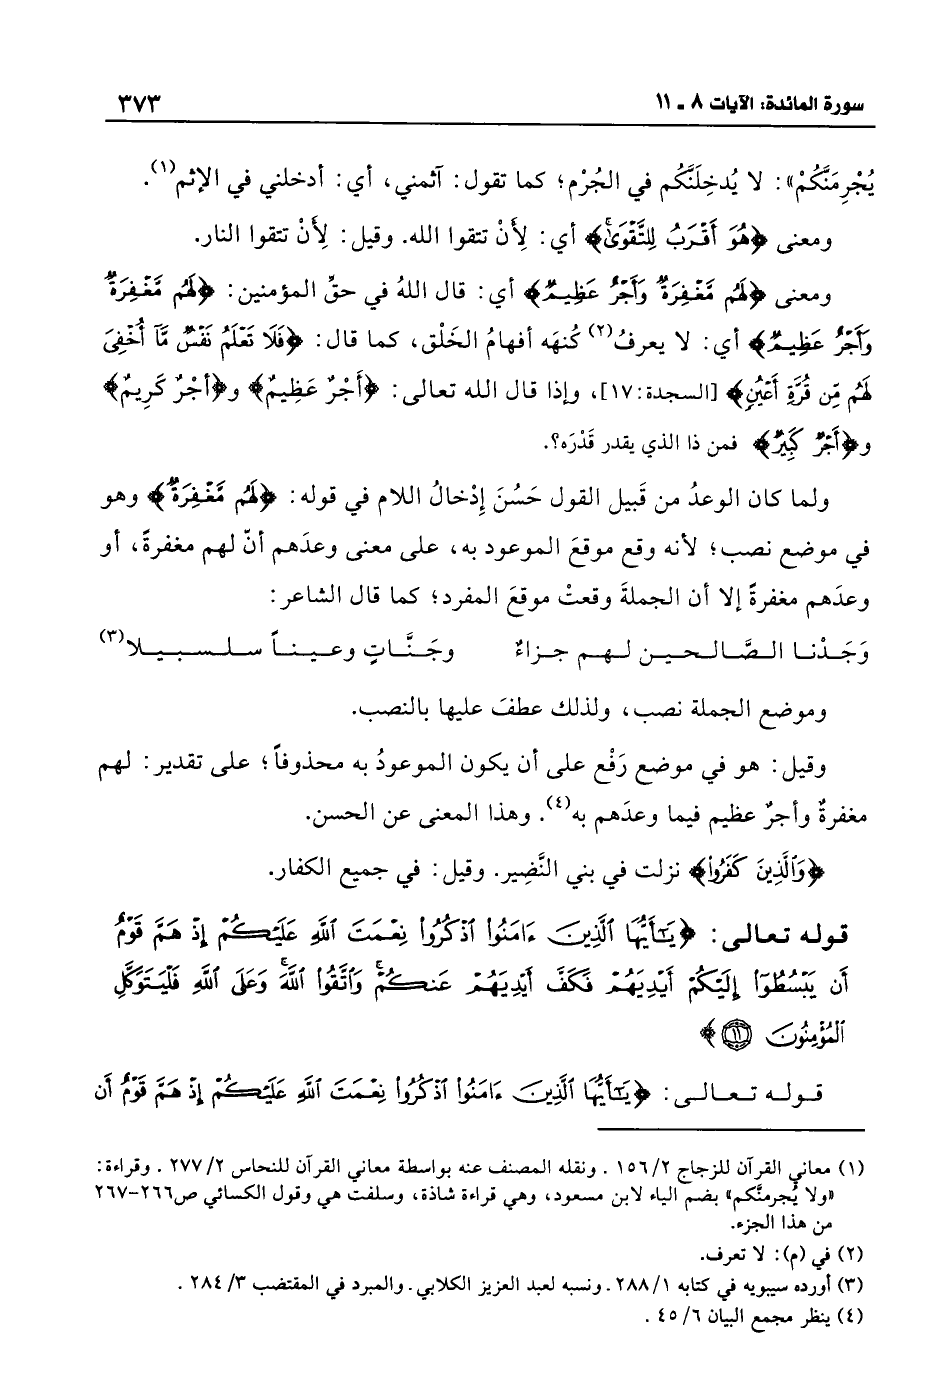 سورة المائدة: الآيات ٨ ـ ١١ ٣٧٣
يُجْرِمَنَّكُمْ»: لا يُدخِلَنَّكُم في الجُرْم؛ كما تقول: آثمني، أي: أدخلني في الإثم(١).
ومعنى ﴿هُوَ أَقْرَبُ لِلتَّقْوَىٰ﴾ أي: لِأَنْ تتقوا الله. وقيل: لِأَنْ تتقوا النار.
ومعنى ﴿لَهُم مَّغْفِرَةٌ وَأَجْرٌ عَظِيمٌ﴾ أي: قال اللهُ في حقِّ المؤمنين: ﴿لَهُم مَّغْفِرَةٌ
وَأَجْرٌ عَظِيمٌ﴾ أي: لا يعرفُ(٢) كُنهَه أفهامُ الخَلْق، كما قال: ﴿فَلَا تَعْلَمُ نَفْسٌ مَّآ أُخْفِىَ
لَهُم مِّن قُرَّةِ أَعْيُنٍ﴾ [السجدة:١٧]، وإذا قال الله تعالى: ﴿أَجْرٌ عَظِيمٌ﴾ و﴿أَجْرٌ كَرِيمٌ﴾
و﴿أَجْرٌ كَبِيرٌ﴾ فمن ذا الذي يقدر قَدْرَه؟.
ولما كان الوعدُ من قَبيل القول حَسُنَ إدْخالُ اللام في قوله: ﴿لَهُم مَّغْفِرَةٌ﴾ وهو
في موضع نصب؛ لأنه وقع موقعَ الموعود به، على معنى وعدَهم أنّ لهم مغفرةً، أو
وعدَهم مغفرةً إلا أن الجملةَ وقعتْ موقعَ المفرد؛ كما قال الشاعر:
وَجَدْنا الصَّالحين لهم جزاءٌ وجَنَّاتٍ وعيناً سلسبيلا(٣)
وموضع الجملة نصب، ولذلك عطفَ عليها بالنصب.
وقيل: هو في موضع رَفْع على أن يكون الموعودُ به محذوفاً؛ على تقدير: لهم
مغفرةٌ وأجرٌ عظيم فيما وعدَهم به(٤). وهذا المعنى عن الحسن.
﴿وَٱلَّذِينَ كَفَرُوا۟﴾ نزلت في بني النَّضِير. وقيل: في جميع الكفار.
قوله تعالى: ﴿يَـٰٓأَيُّهَا ٱلَّذِينَ ءَامَنُوا۟ ٱذْكُرُوا۟ نِعْمَتَ ٱللَّهِ عَلَيْكُمْ إِذْ هَمَّ قَوْمٌ
أَن يَبْسُطُوٓا۟ إِلَيْكُمْ أَيْدِيَهُمْ فَكَفَّ أَيْدِيَهُمْ عَنكُمْ ۖ وَٱتَّقُوا۟ ٱللَّهَ ۚ وَعَلَى ٱللَّهِ فَلْيَتَوَكَّلِ
ٱلْمُؤْمِنُونَ ﴿١١﴾﴾
قوله تعالى: ﴿يَـٰٓأَيُّهَا ٱلَّذِينَ ءَامَنُوا۟ ٱذْكُرُوا۟ نِعْمَتَ ٱللَّهِ عَلَيْكُمْ إِذْ هَمَّ قَوْمٌ أَن
(١) معاني القرآن للزجاج ١٥٦/٢ . ونقله المصنف عنه بواسطة معاني القرآن للنحاس ٢٧٧/٢ . وقراءة:
«ولا يُجرمنَّكم» بضم الياء لابن مسعود، وهي قراءة شاذة، وسلفت هي وقول الكسائي ص٢٦٦-٢٦٧
من هذا الجزء.
(٢) في (م): لا تعرف.
(٣) أورده سيبويه في كتابه ٢٨٨/١ . ونسبه لعبد العزيز الكلابي. والمبرد في المقتضب ٢٨٤/٣ .
(٤) ينظر مجمع البيان ٤٥/٦ .